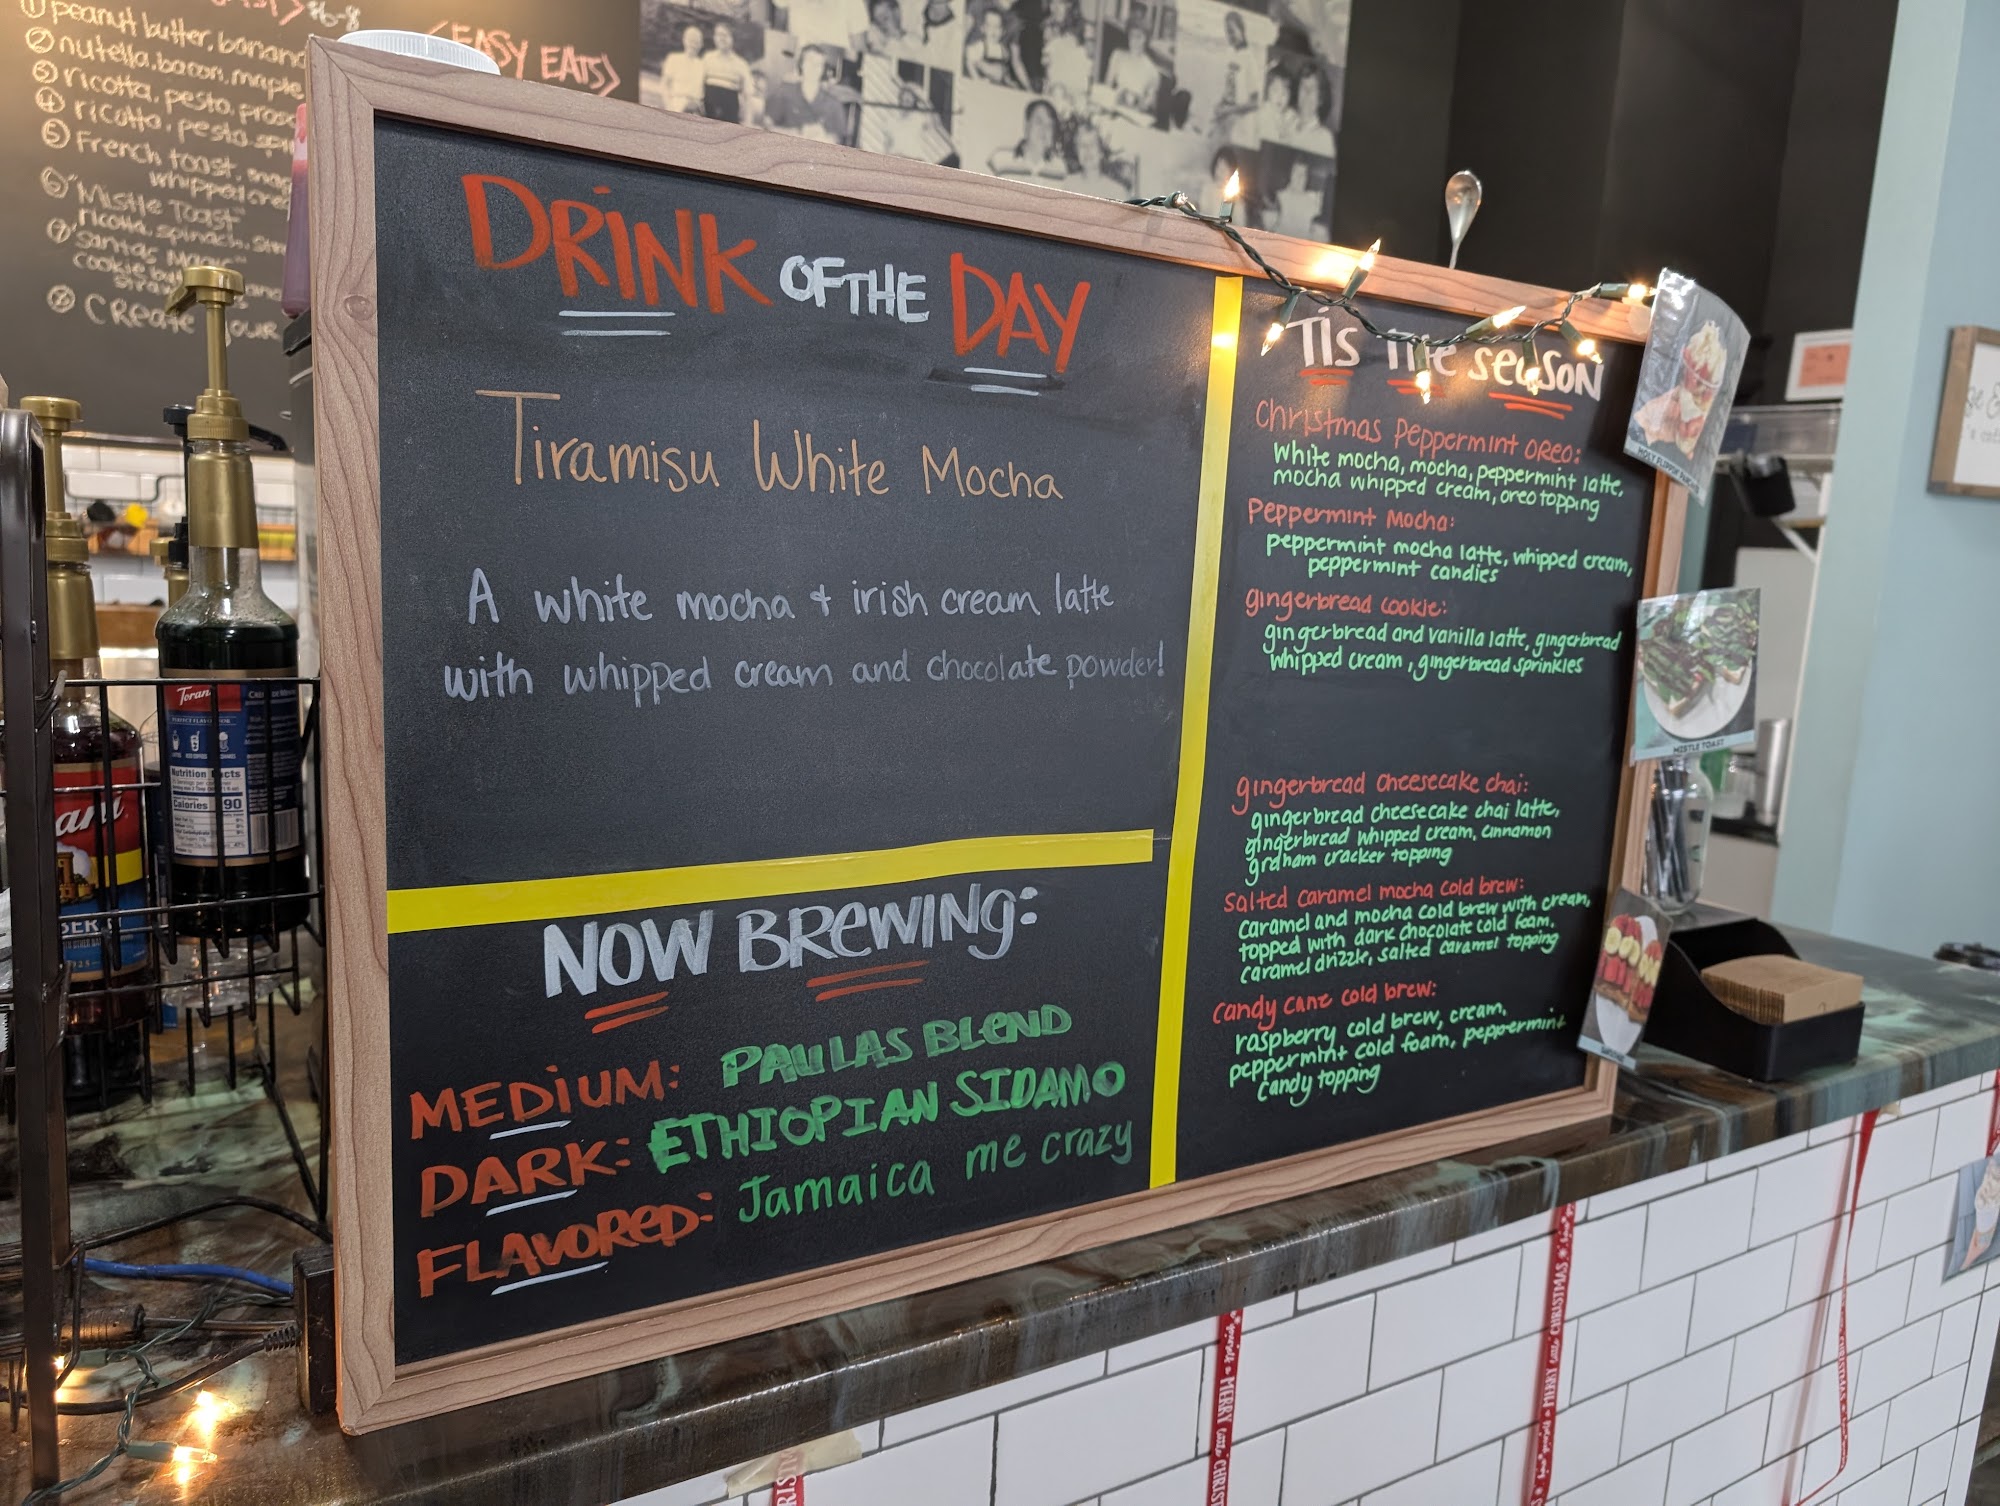 $6-8
① peanut butter, banana
② nutella, bacon, maple
③ ricotta, pesto,
④ ricotta, pesto,
⑤ French toast,
whipped
⑥ "Mistle Toast"
ricotta, spinach,
⑦ "Santas Magic"
⑧ Create your
<EASY EATS>
DRINK OF THE DAY
Tiramisu White Mocha
A white mocha + irish cream latte
with whipped cream and chocolate powder!
NOW BREWING:
MEDIUM: PAULAS BLEND
DARK: ETHIOPIAN SIDAMO
FLAVORED: Jamaica me crazy
TIS THE SEASON
Christmas Peppermint Oreo:
White mocha, mocha, peppermint latte,
mocha whipped cream, oreo topping
Peppermint Mocha:
peppermint mocha latte, whipped cream,
peppermint candies
gingerbread cookie:
gingerbread and vanilla latte, gingerbread
whipped cream, gingerbread sprinkles
gingerbread cheesecake chai:
gingerbread cheesecake chai latte,
gingerbread whipped cream, cinnamon
graham cracker topping
Salted caramel mocha cold brew:
caramel and mocha cold brew with cream,
topped with dark chocolate cold foam,
caramel drizzle, salted caramel topping
candy cane cold brew:
raspberry cold brew, cream,
peppermint cold foam, peppermint
candy topping
MISTLE TOAST
Torani
Nutrition Facts
Calories 90
MERRY little CHRISTMAS
MERRY little CHRISTMAS